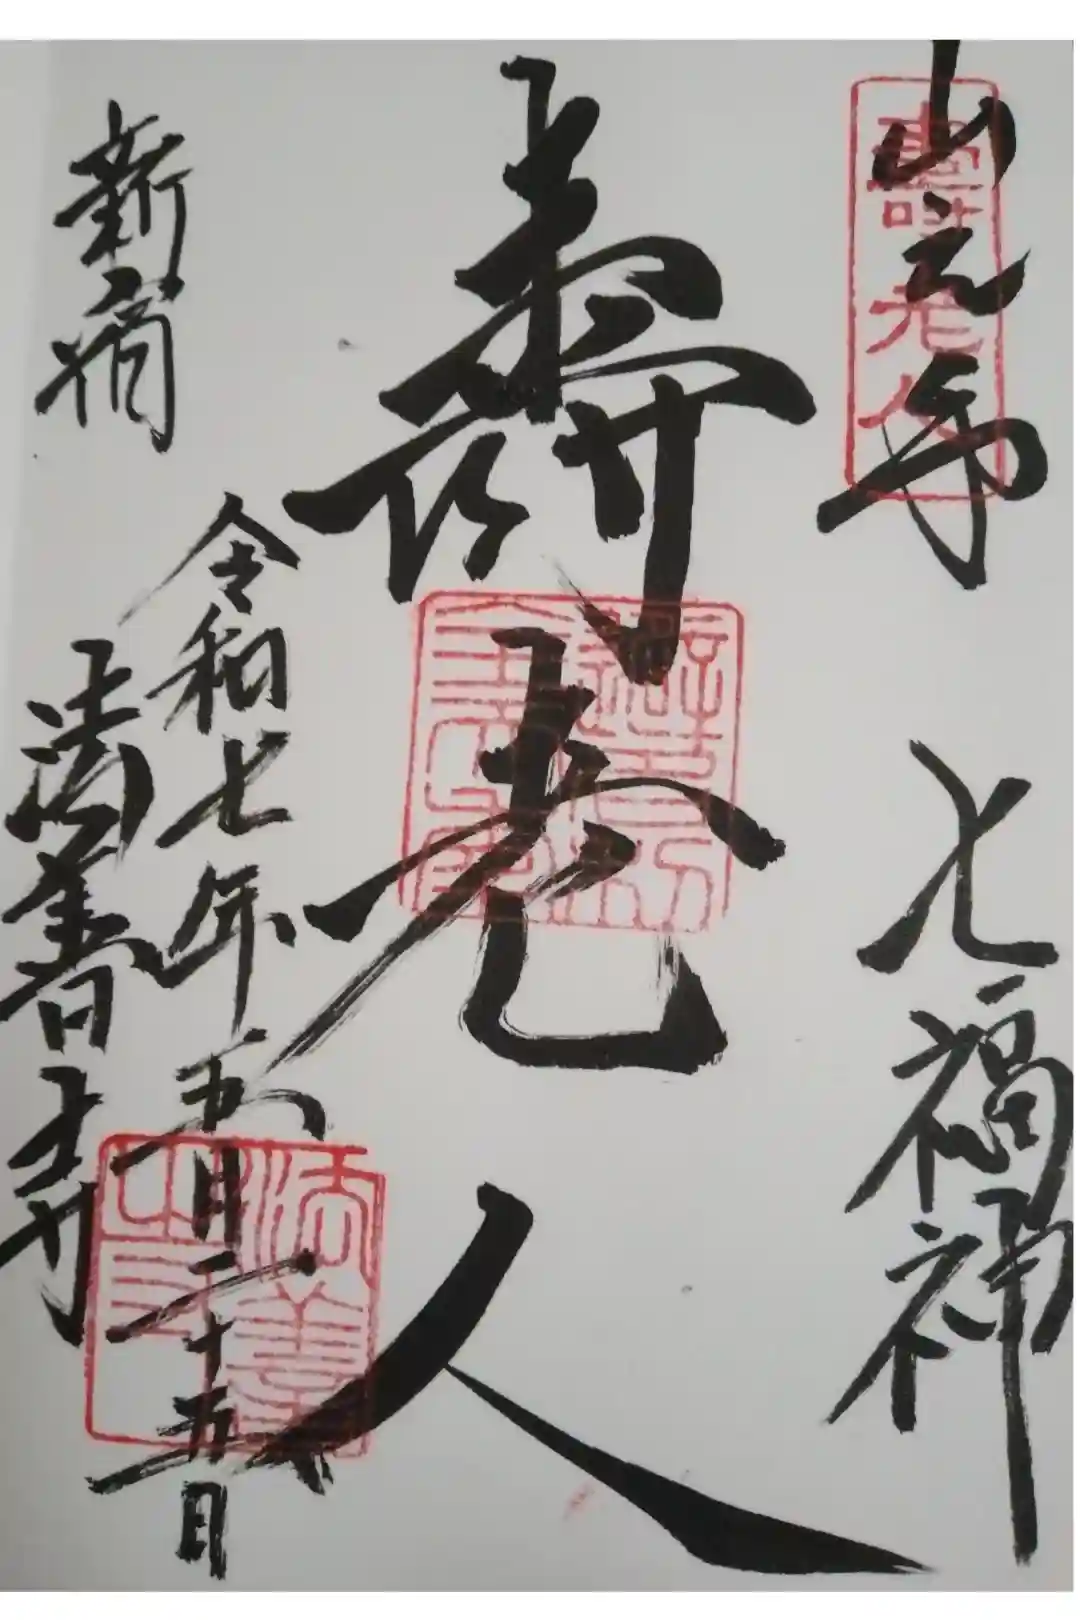 山之手 七福神
壽老人
令和七年五月二十五日
新宿 法善寺